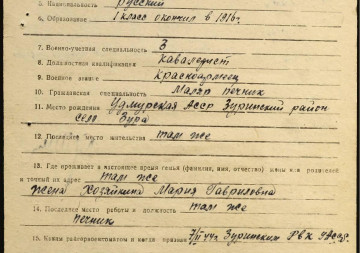 5. Национальность русский
6. Образование 1 класс окончил в 1916 г.
7. Военно-учетная специальность 3
8. Должностная квалификация кавалерист
9. Военное звание Красноармеец
10. Гражданская специальность Маляр печник
11. Место рождения Удмурская Асср Зуринский район
село Зура
12. Последнее место жительства там же
13. Где проживает в настоящее время семья (фамилия, имя, отчество) жены или родителей
и точный их адрес там же
Жена Хозяйкина Мария Гавриловна
14. Последнее место работы и должность там же
печник
15. Каким райвоенкоматом и когда призван 7/II 44 г. Зуринским РВК УАССР.